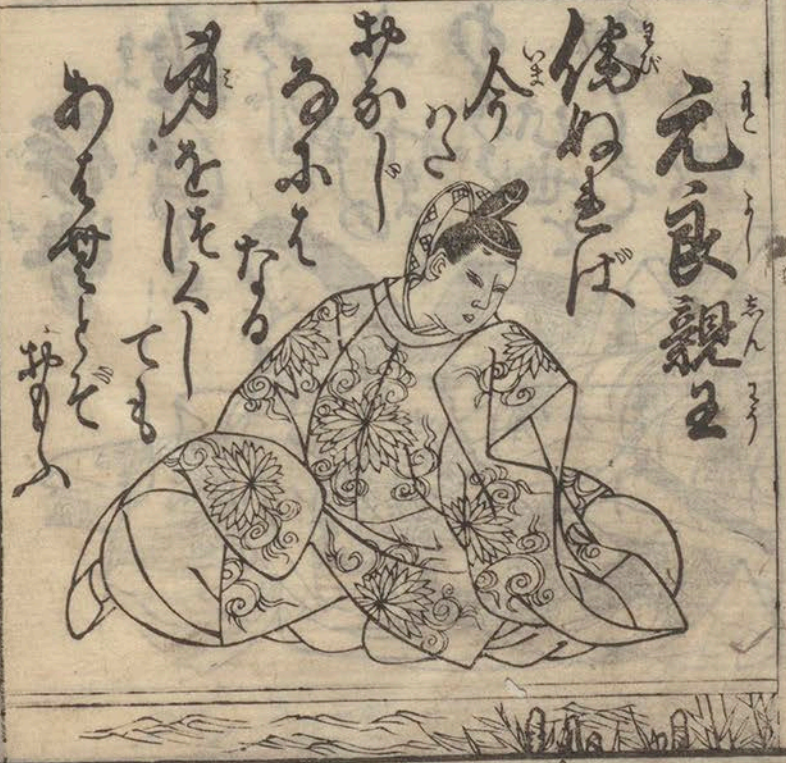 元良親王
侘ぬれば
今はた
おなじ
なにはなる
身をつくし
ても
あはむとぞ
おもふ